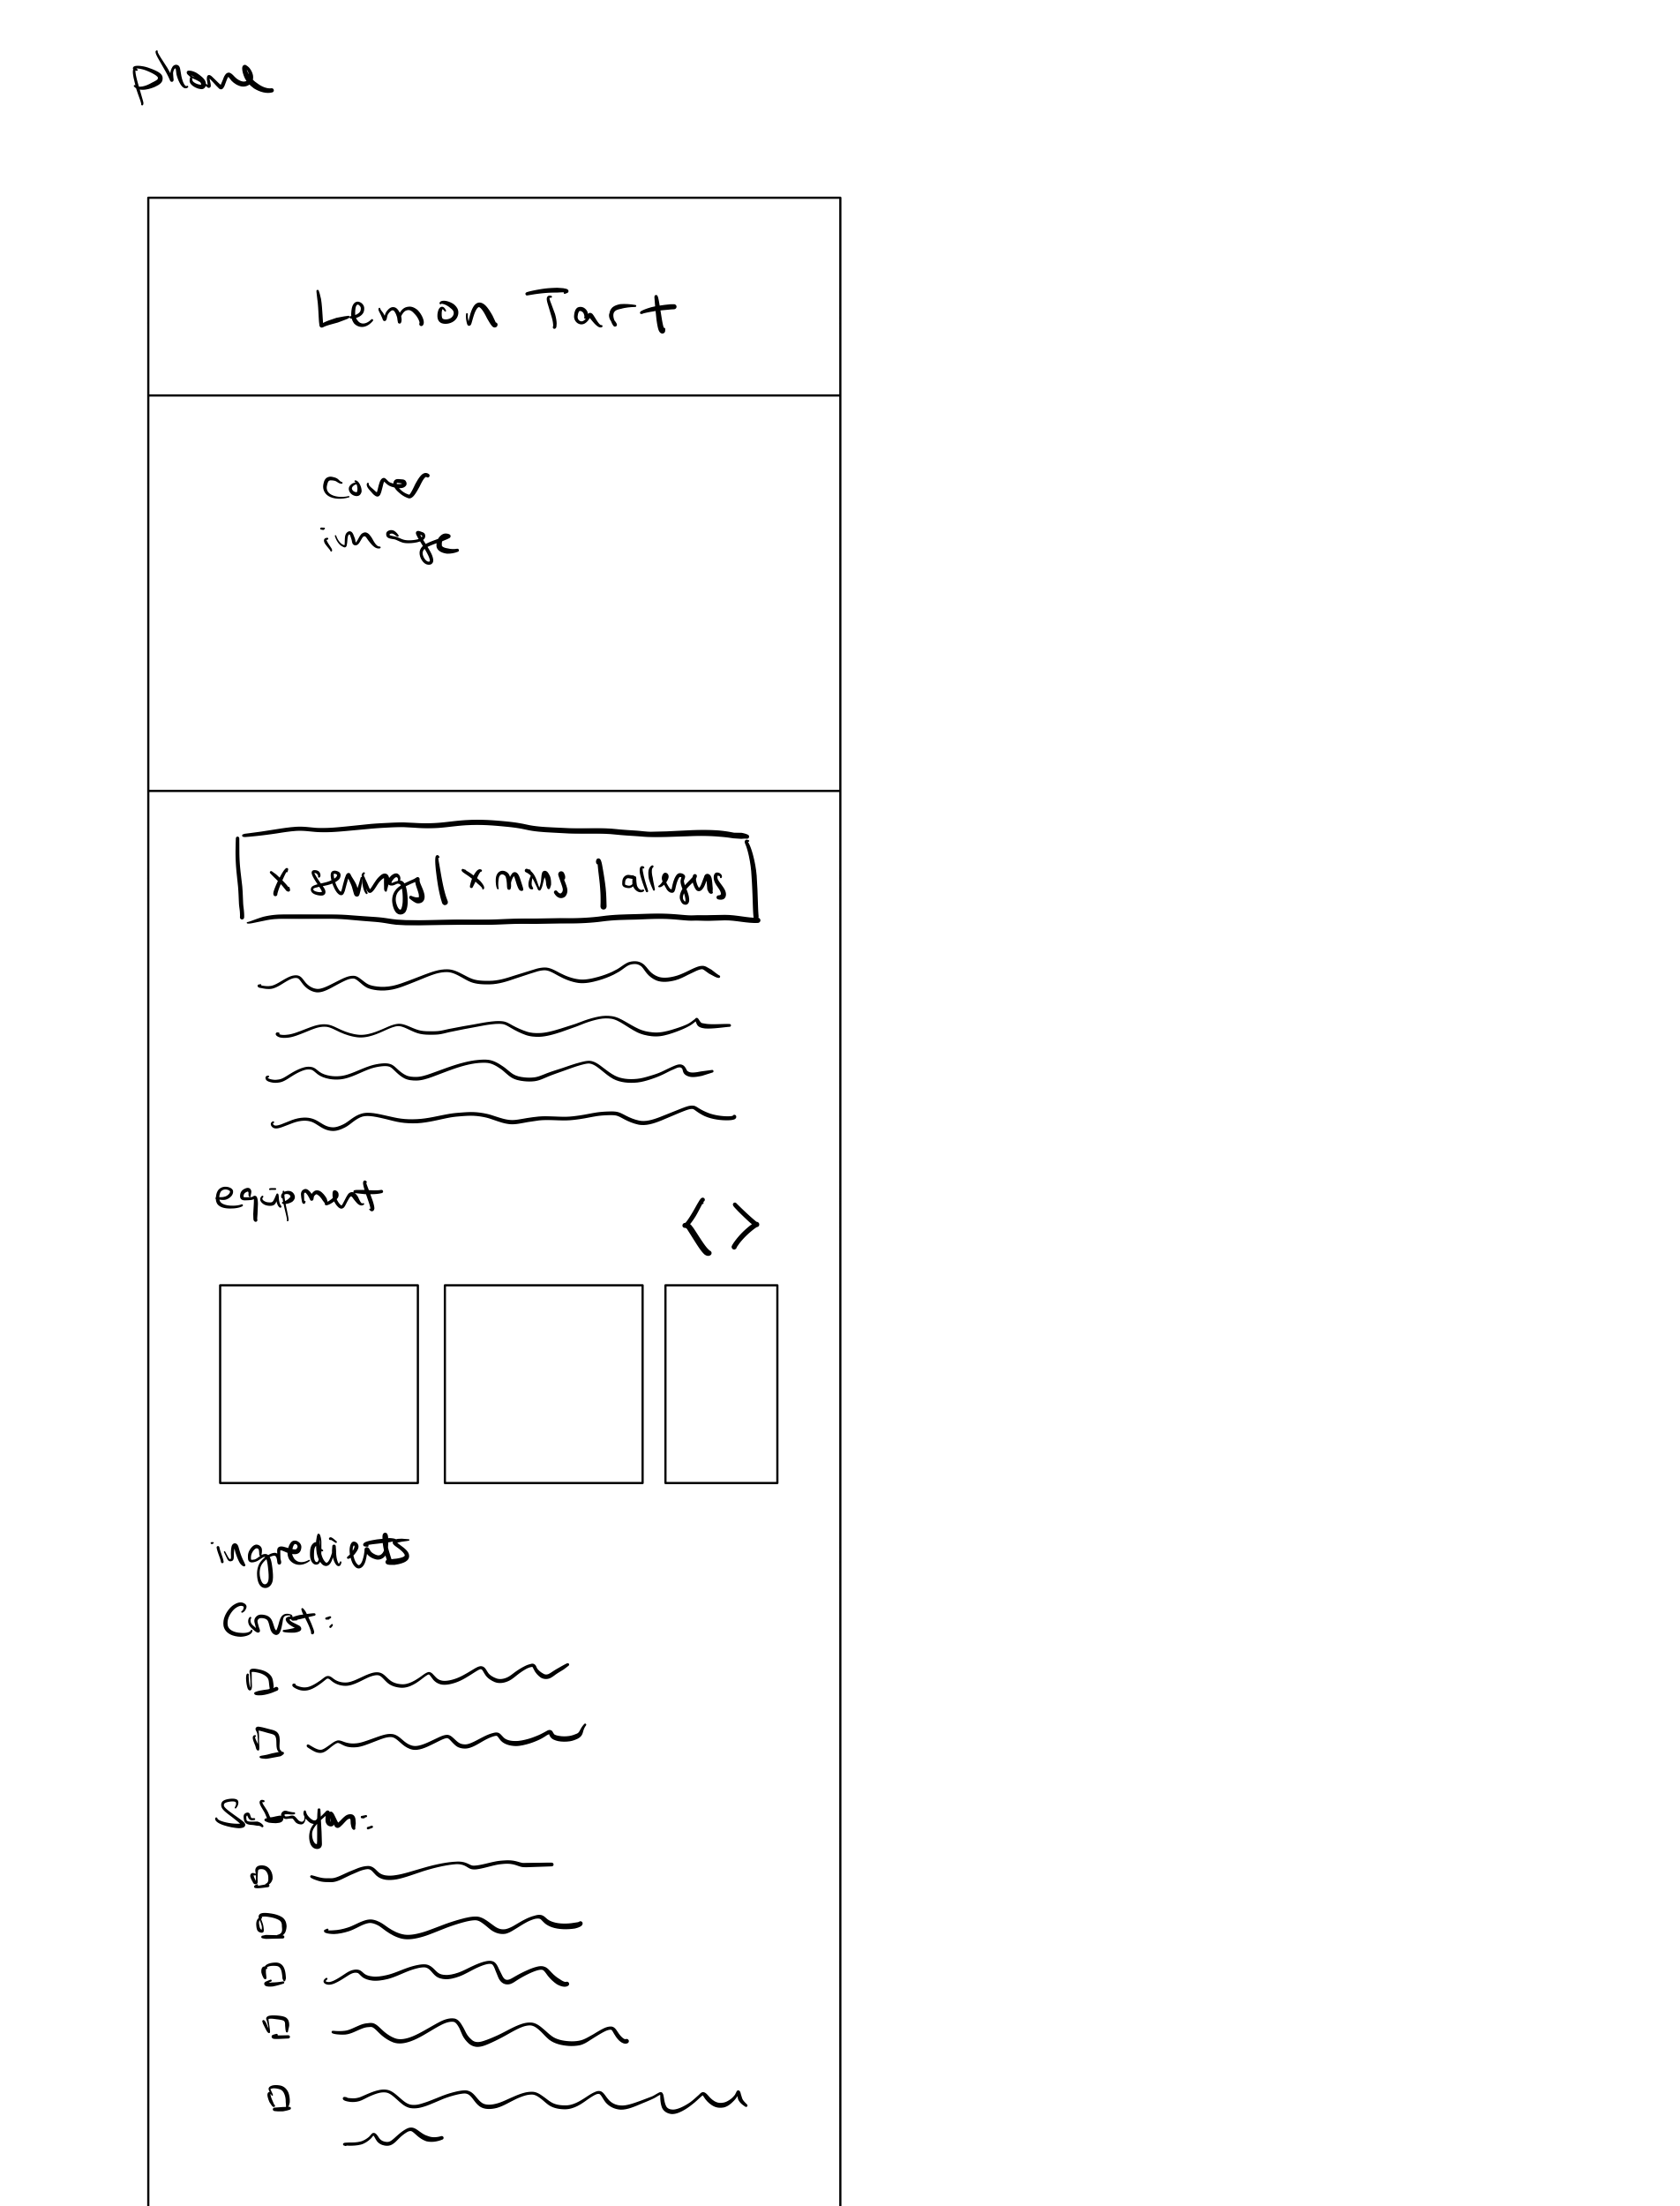 phone
Lemon Tart
cover
image
x servings | x mins | allergens
equipment
< >
ingredients
Crust:
Sabayon: